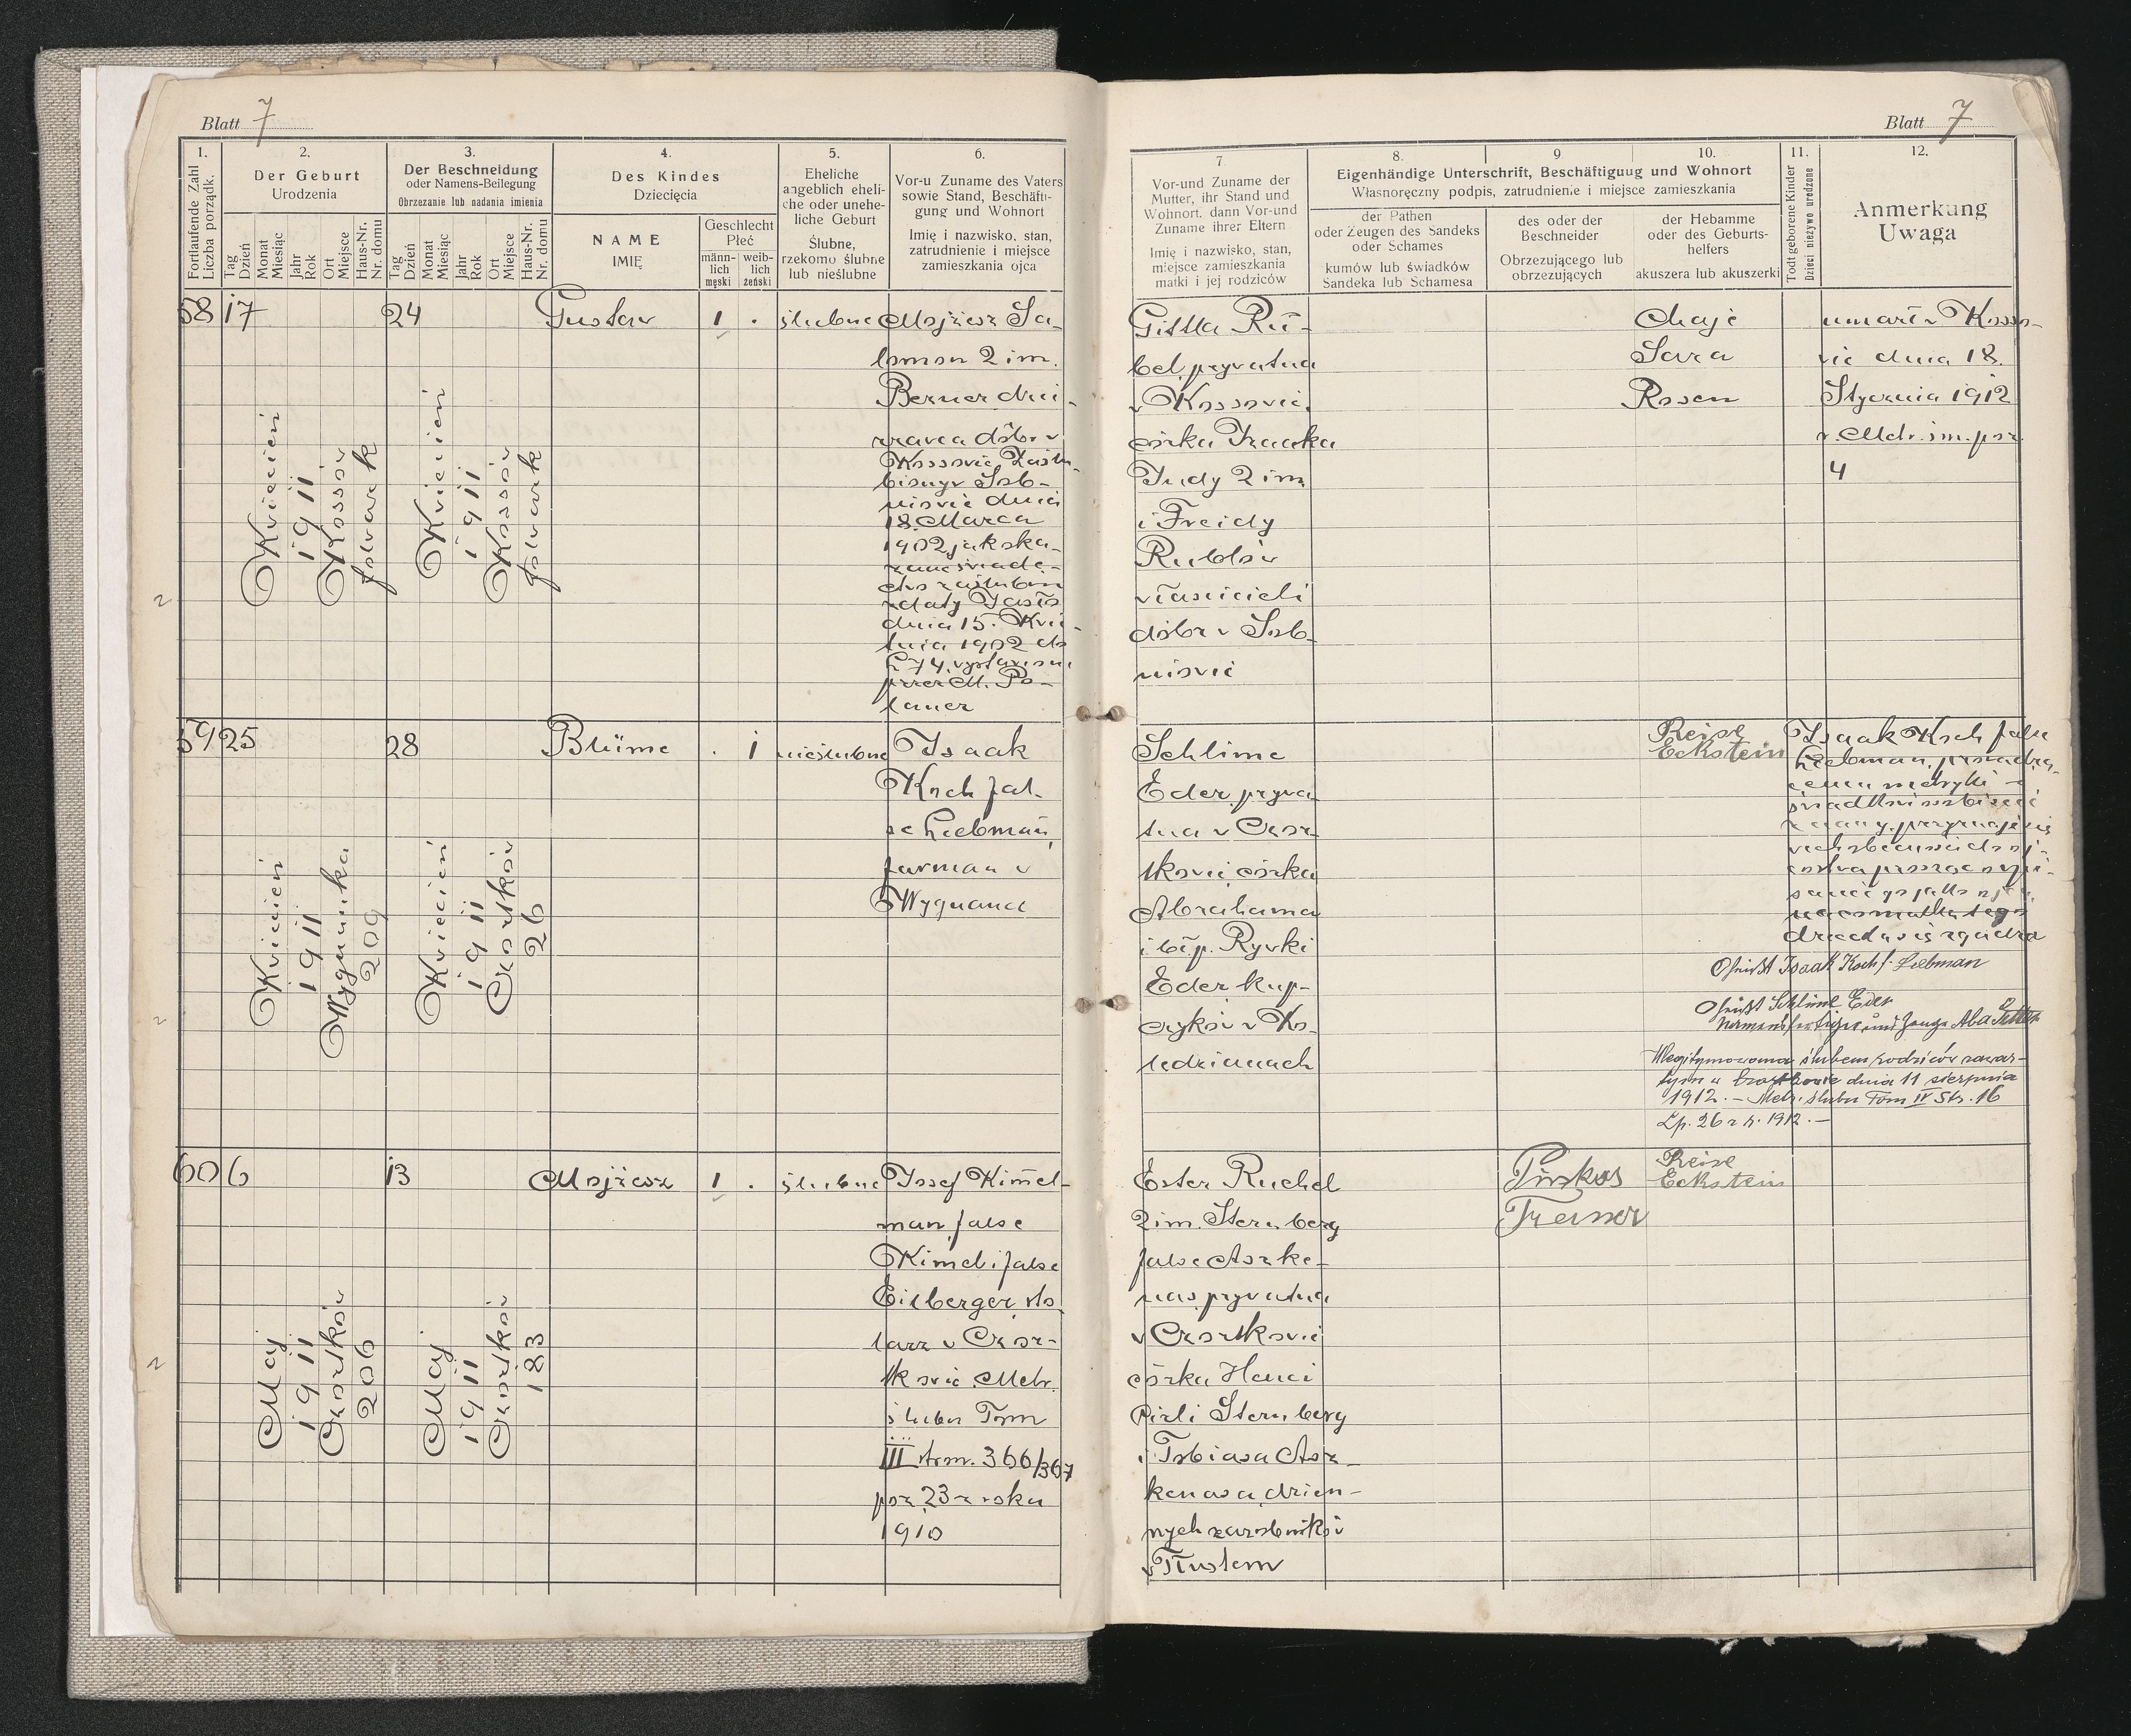 Blatt 7
1.
Fortlaufende Zahl
Liczba porządk.
2.
Der Geburt
Urodzenia
Tag
Dzień
Monat
Miesiąc
Jahr
Rok
Ort
Miejsce
Haus-Nr.
Nr. domu
3.
Der Beschneidung
oder Namens-Beilegung
Obrzezanie lub nadania imienia
Tag
Dzień
Monat
Miesiąc
Jahr
Rok
Ort
Miejsce
Haus-Nr.
Nr. domu
4.
Des Kindes
Dziecięcia
NAME
IMIĘ
Geschlecht
Płeć
männ-
lich
męski
weib-
lich
żeński
5.
Eheliche
angeblich eheli-
che oder unehe-
liche Geburt
Ślubne,
rzekomo ślubne
lub nieślubne
6.
Vor-u Zuname des Vaters
sowie Stand, Beschäfti-
gung und Wohnort
Imię i nazwisko, stan,
zatrudnienie i miejsce
zamieszkania ojca
58
17
Kwiecień
1911
Kossów
folwark
24
Kwiecień
1911
Kossów
folwark
Gustaw
1 .
ślubne
Mojżesz Sa-
lomon 2 im.
Berner dzie-
rzawca dóbr w
Kossowie Zaślu-
biony w Sob-
niowie dnia
18. Marca
1902 jak oka-
zane świade-
ctwo zaślubin
z daty Jasło
dnia 15. Kwie-
tnia 1902 do
L 74. wystawione
przez M. Po-
laner
59
25
Kwiecień
1911
Wygnanka
209
28
Kwiecień
1911
Czortków
26
Blüme
. 1
nieślubne
Isaak
Koch fal-
se Liebman,
furman w
Wygnance
60
6
Maj
1911
Czortków
206
13
Maj
1911
Czortków
183
Mojżesz
1 .
ślubne
Josef Kimel-
man false
Kimel i false
Eilberger, sto-
larz w Czor-
tkowie. Metr.
ślubu Tom
III stron. 366/367
poz. 23 z roku
1910
Blatt 7
7
Vor-und Zuname der
Mutter, ihr Stand und
Wohnort. dann Vor-und
Zuname ihrer Eltern
Imię i nazwisko, stan,
miejsce zamieszkania
matki i jej rodziców
8. 9 10.
Eigenhändige Unterschrift, Beschäftiguug und Wohnort
Własnoręczny podpis, zatrudnienie i miejsce zamieszkania
der Pathen
oder Zeugen des Sandeks
oder Schames
kumów lub świadków
Sandeka lub Schamesa
des oder der
Beschneider
Obrzezującego lub
obrzezujących
der Hebamme
oder des Geburts-
helfers
akuszera lub akuszerki
11.
Todt geborene Kinder
Dzieci nieżywo urodzone
12.
Anmerkung
Uwaga
Gittla Rü-
bel, prywatna
w Kossowie,
córka Izaaka
Judy 2 im
i Freidy
Rublów
właścicieli
dóbr w Sob-
niowie
Chaje
Sara
Rosen
umarł w Kosso-
wie dnia 18.
Stycznia 1912
v. Metr. śm. poz.
4
Schlime
Eder prywa-
tna w Czor-
tkowie córka
Abrahama
i błp. Rywki
Eder kup-
czyków w Ko-
ledzianach
Reise
Eckstein
Isaak Koch false
Liebman, prowadzą-
cemu metryki
świadkowi osobiście
znany, przyznaje się
w ich obecności do oj-
costwa prosząc o wpi-
sanie go jako ojca,
na co matka tego
dziecka się zgadza
Isaak Koch f. Liebman
Schlime Eder
Namensfertiger und Zeuge Aba
Wlegitymowana ślubem rodziców zawar-
tym w Czortkowie dnia 11 sierpnia
1912. — Metr. ślubu Tom IV Str. 16
Lp. 26 z r. 1912. —
Ester Ruchel
2 im. Sternberg
false Aszke-
nas, prywatna
w Czortkowie
córka Henci
Pirli Sternberg
i Tobiasa Asz-
kenasa, dzien-
nych zarobników
w Tłustem
Pinkas
Treiser
Reise
Eckstein